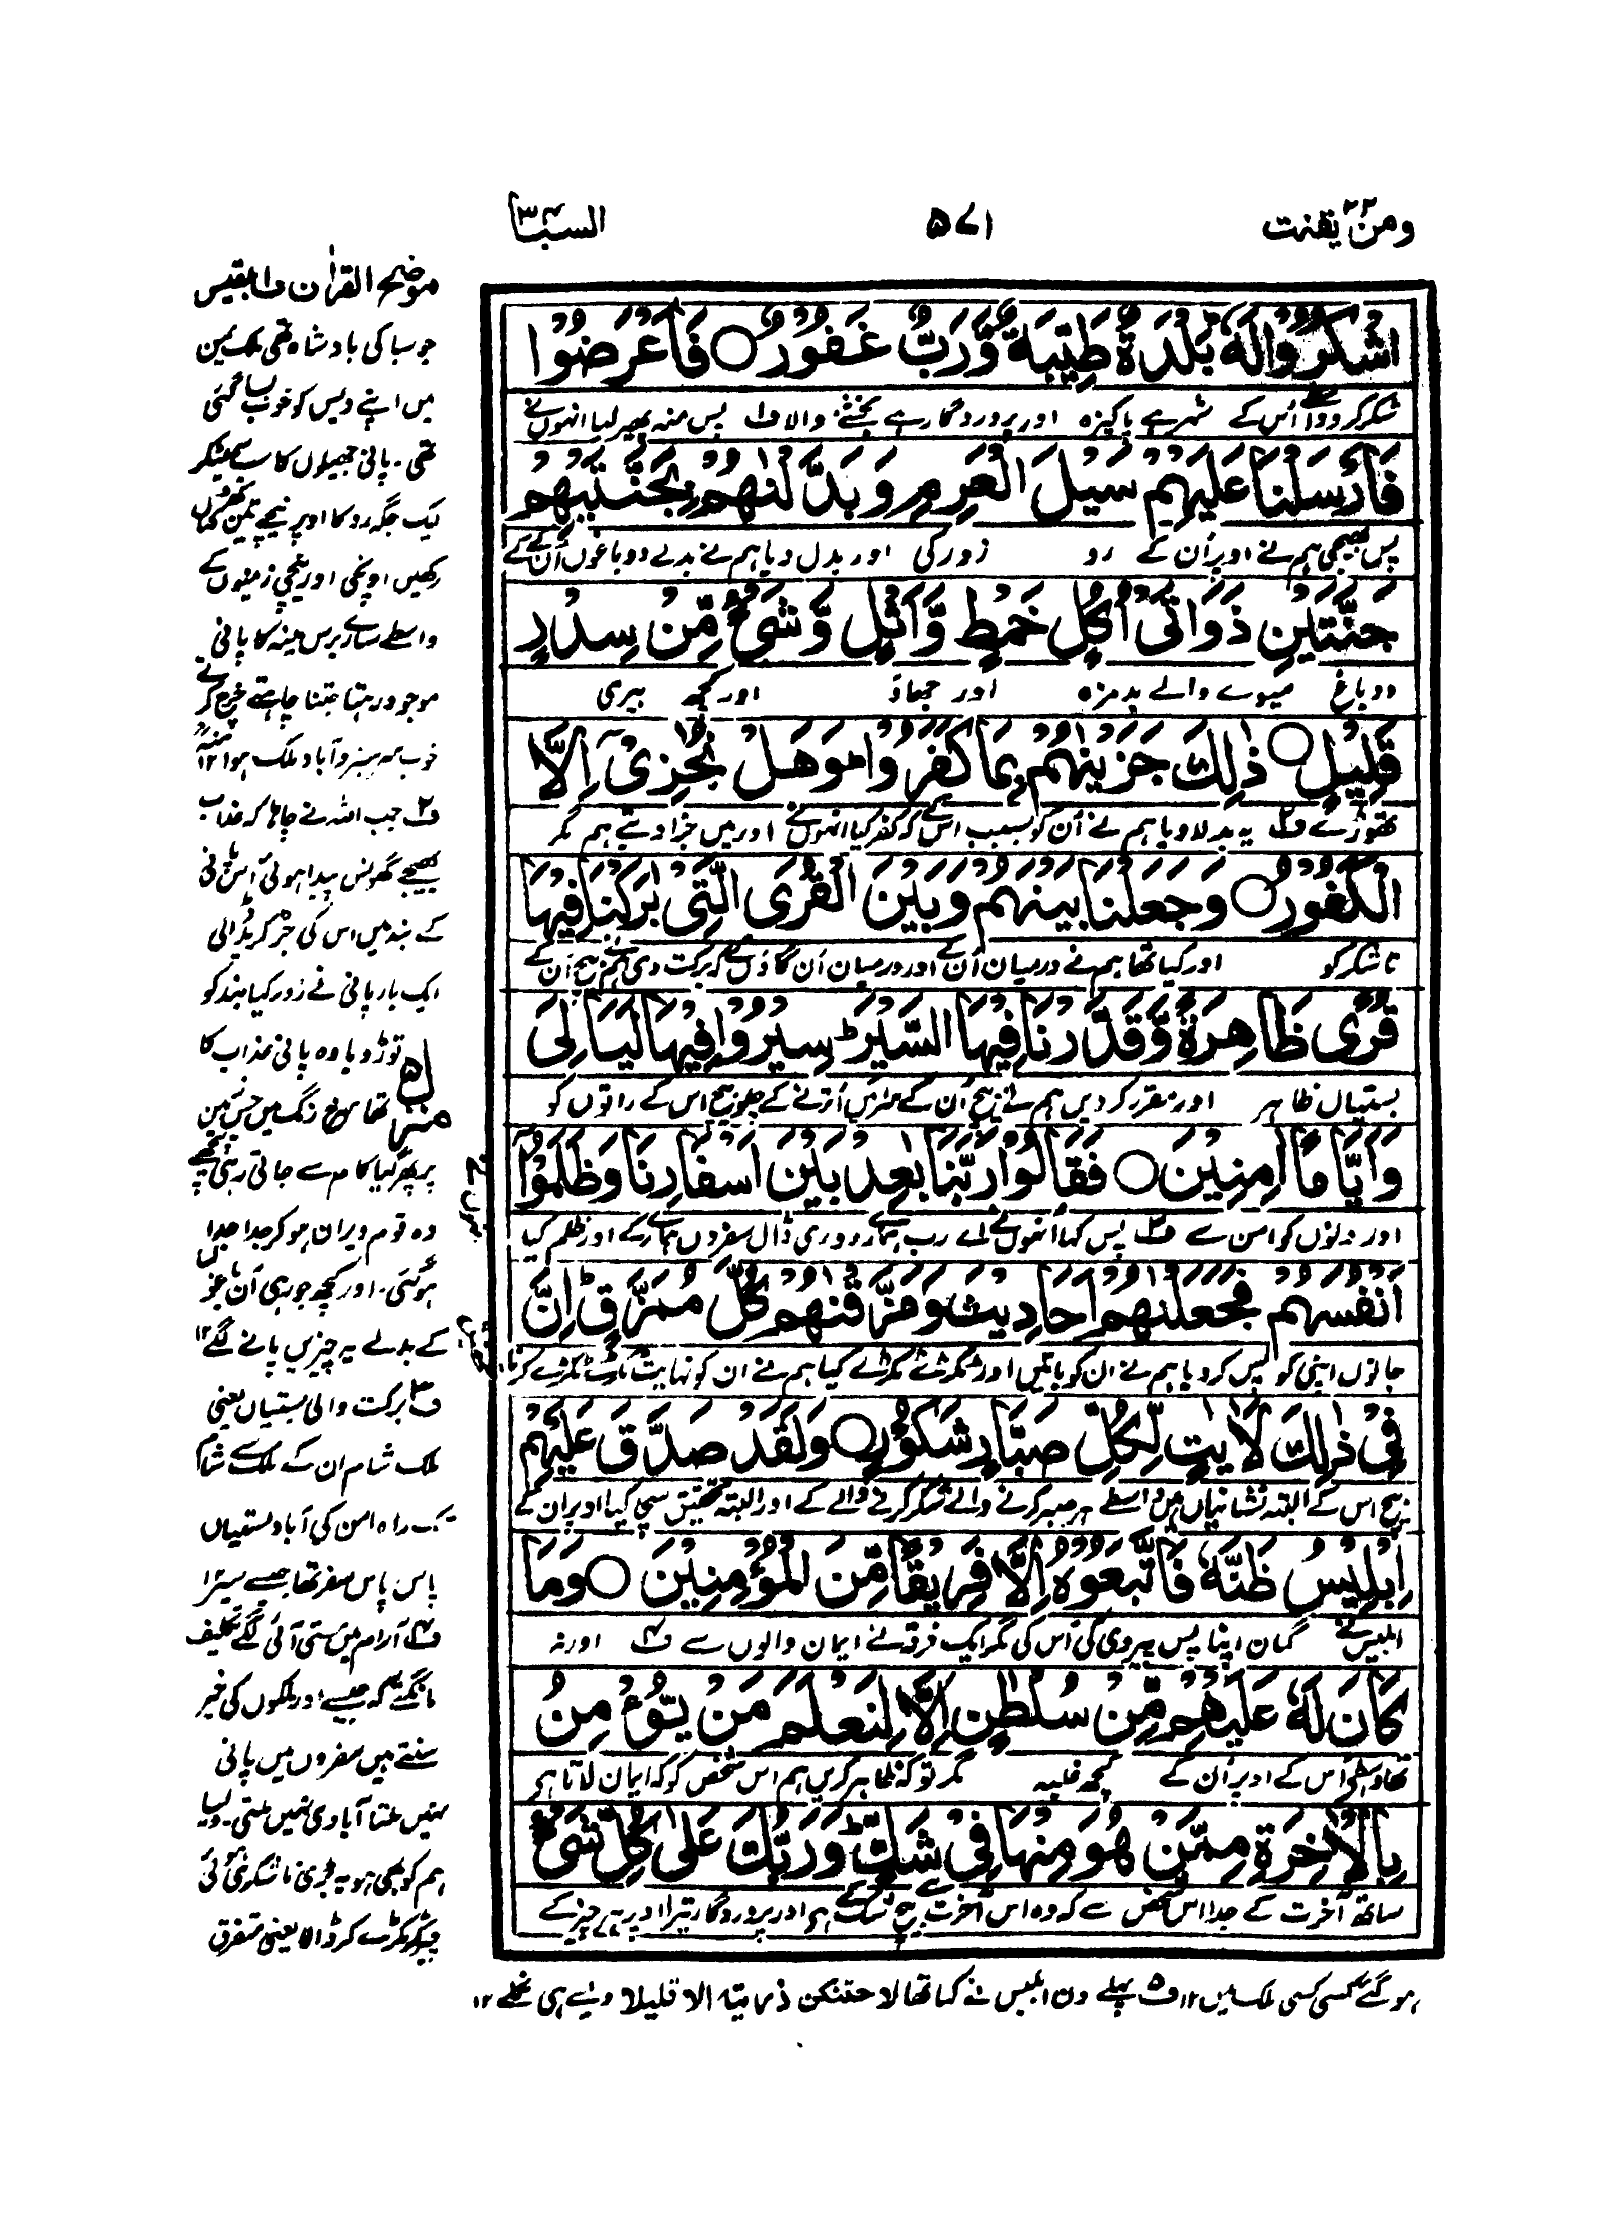 ومن يقنت ٢٢
٥٧١
السبا ٣٤
اشْكُرُوْا لَهٗ بَلْدَةٌ طَيِّبَةٌ وَّرَبٌّ غَفُوْرٌ ○ فَاَعْرَضُوْا
شکر کرو واسطے اُس کے شہر ہے پاکیزہ اور پروردگار ہے بخشنے والا ف۱ پس منہ پھیر لیا انہوں نے
فَاَرْسَلْنَا عَلَيْهِمْ سَيْلَ الْعَرِمِ وَبَدَّلْنٰهُمْ بِجَنَّتَيْهِمْ
پس بھیجی ہم نے اوپر اُن کے رو زور کی اور بدل دیا ہم نے بدلے دو باغوں اُن کے کے
جَنَّتَيْنِ ذَوَاتَیْ اُكُلٍ خَمْطٍ وَّاَثْلٍ وَّشَیْءٍ مِّنْ سِدْرٍ
دو باغ میوے والے بدمزہ اور جھاؤ اور کچھ بیری
قَلِيْلٍ ○ ذٰلِكَ جَزَيْنٰهُمْ بِمَا كَفَرُوْا ؕ وَهَلْ نُجٰزِیْۤ اِلَّا
تھوڑی سے ف۲ یہ بدلا دیا ہم نے اُن کو بسبب اس کے کہ کفر کیا انہوں نے اور نہیں جزا دیتے ہم مگر
الْكَفُوْرَ ○ وَجَعَلْنَا بَيْنَهُمْ وَبَيْنَ الْقُرَی الَّتِیْ بٰرَكْنَا فِيْهَا
ناشکر کو اور کیا تھا ہم نے درمیان اُن کے اور درمیان اُن گاؤں کے کہ برکت دی ہم نے بیچ اُن کے
قُرًی ظَاهِرَةً وَّقَدَّرْنَا فِيْهَا السَّيْرَ ؕ سِيْرُوْا فِيْهَا لَيَالِیَ
بستیاں ظاہر اور مقرر کر دیں ہم نے بیچ اُن کے منزلیں اُترنے کے چلو بیچ اس کے راتوں کو
وَاَيَّامًا اٰمِنِيْنَ ○ فَقَالُوْا رَبَّنَا بٰعِدْ بَيْنَ اَسْفَارِنَا وَظَلَمُوْۤا
اور دنوں کو امن سے ف۳ پس کہا اُنھوں نے اے رب ہمارے دوری ڈال سفروں ہمارے کے اور ظلم کیا
اَنْفُسَهُمْ فَجَعَلْنٰهُمْ اَحَادِيْثَ وَمَزَّقْنٰهُمْ كُلَّ مُمَزَّقٍ ؕ اِنَّ
جانوں اپنی کو پس کر دیا ہم نے ان کو باتیں اور ٹکڑے ٹکڑے کیا ہم نے ان کو نہایت ٹکڑے ٹکڑے کرنا
فِیْ ذٰلِكَ لَاٰيٰتٍ لِّكُلِّ صَبَّارٍ شَكُوْرٍ ○ وَلَقَدْ صَدَّقَ عَلَيْهِمْ
بیچ اس کے البتہ نشانیاں ہیں واسطے ہر صبر کرنے والے شکر کرنے والے کے اور البتہ تحقیق سچ کیا اوپر ان کے
اِبْلِيْسُ ظَنَّهٗ فَاتَّبَعُوْهُ اِلَّا فَرِيْقًا مِّنَ الْمُؤْمِنِيْنَ ○ وَمَا
ابلیس نے گمان اپنا پس پیروی کی اُس کی مگر ایک فرقہ نے ایمان والوں سے ف۴ اور نہ
كَانَ لَهٗ عَلَيْهِمْ مِّنْ سُلْطٰنٍ اِلَّا لِنَعْلَمَ مَنْ يُّؤْمِنُ
تھا واسطے اُس کے اوپر اُن کے کچھ غلبہ مگر تو کہ ظاہر کریں ہم اس شخص کو کہ ایمان لاتا ہے
بِالْاٰخِرَةِ مِمَّنْ هُوَ مِنْهَا فِیْ شَكٍّ ؕ وَرَبُّكَ عَلٰی كُلِّ شَیْءٍ
ساتھ آخرت کے جدا اس شخص سے کہ وہ اس آخرت سے بیچ شک کے ہے اور پروردگار تیرا اوپر ہر چیز کے
موضح القرآن ف۱ بلقیس
جو سبا کی بادشاہ تھی ملک یمن
میں اپنے دیس کو خوب بسا گئی
تھی۔ پانی جھیلوں کا سب سمیٹ کر
ایک جگہ روکا اوپر نیچے تین
رکھیں اونچی اور نیچی زمینوں کے
واسطے سارے برس مینہ کا پانی
موجود رہتا جتنا چاہتے خرچ کرتے
خوب سرسبز و آباد ملک ہوا ۱۲
ف۲ جب اللہ نے چاہا کہ عذاب
بھیجے گھونس پیدا ہوئی اس پانی
کے بند میں اس کی جڑ کرید ڈالی
ایک بار پانی نے زور کیا بند کو
توڑ دیا وہ پانی عذاب کا
تھا سرخ رنگ میں جس زمین
پر پھر گیا کام سے جاتی رہی پیچھے
وہ قوم ویران ہو کر جدا جدا
ہو گئی۔ اور کچھ جو رہی اُن
کے بدلے یہ چیزیں پانے لگے ۱۲
ف۳ برکت والی بستیاں یعنی
ملک شام ان کے ملک سے شام
تک راہ امن کی آباد بستیاں
پاس پاس سفر تھا جیسے سیر ۱۲
ف۴ آرام میں مستی آئی لگے تکلیف
مانگنے کہ جیسے اور ملکوں کی خبر
سنتے ہیں سفروں میں پانی
نہیں ملتا آبادی نہیں ملتی۔ ویسا
ہم کو بھی ہو یہ بڑی ناشکری ہوئی
ٹکڑے ٹکڑے کر ڈالا یعنی متفرق
ہو گئے کسی کسی ملک میں ۱۲ ف۵ پہلے دن ابلیس نے کہا تھا لاحتنکن ذریتہ الا قلیلا ویسے ہی نکلے ۱۲